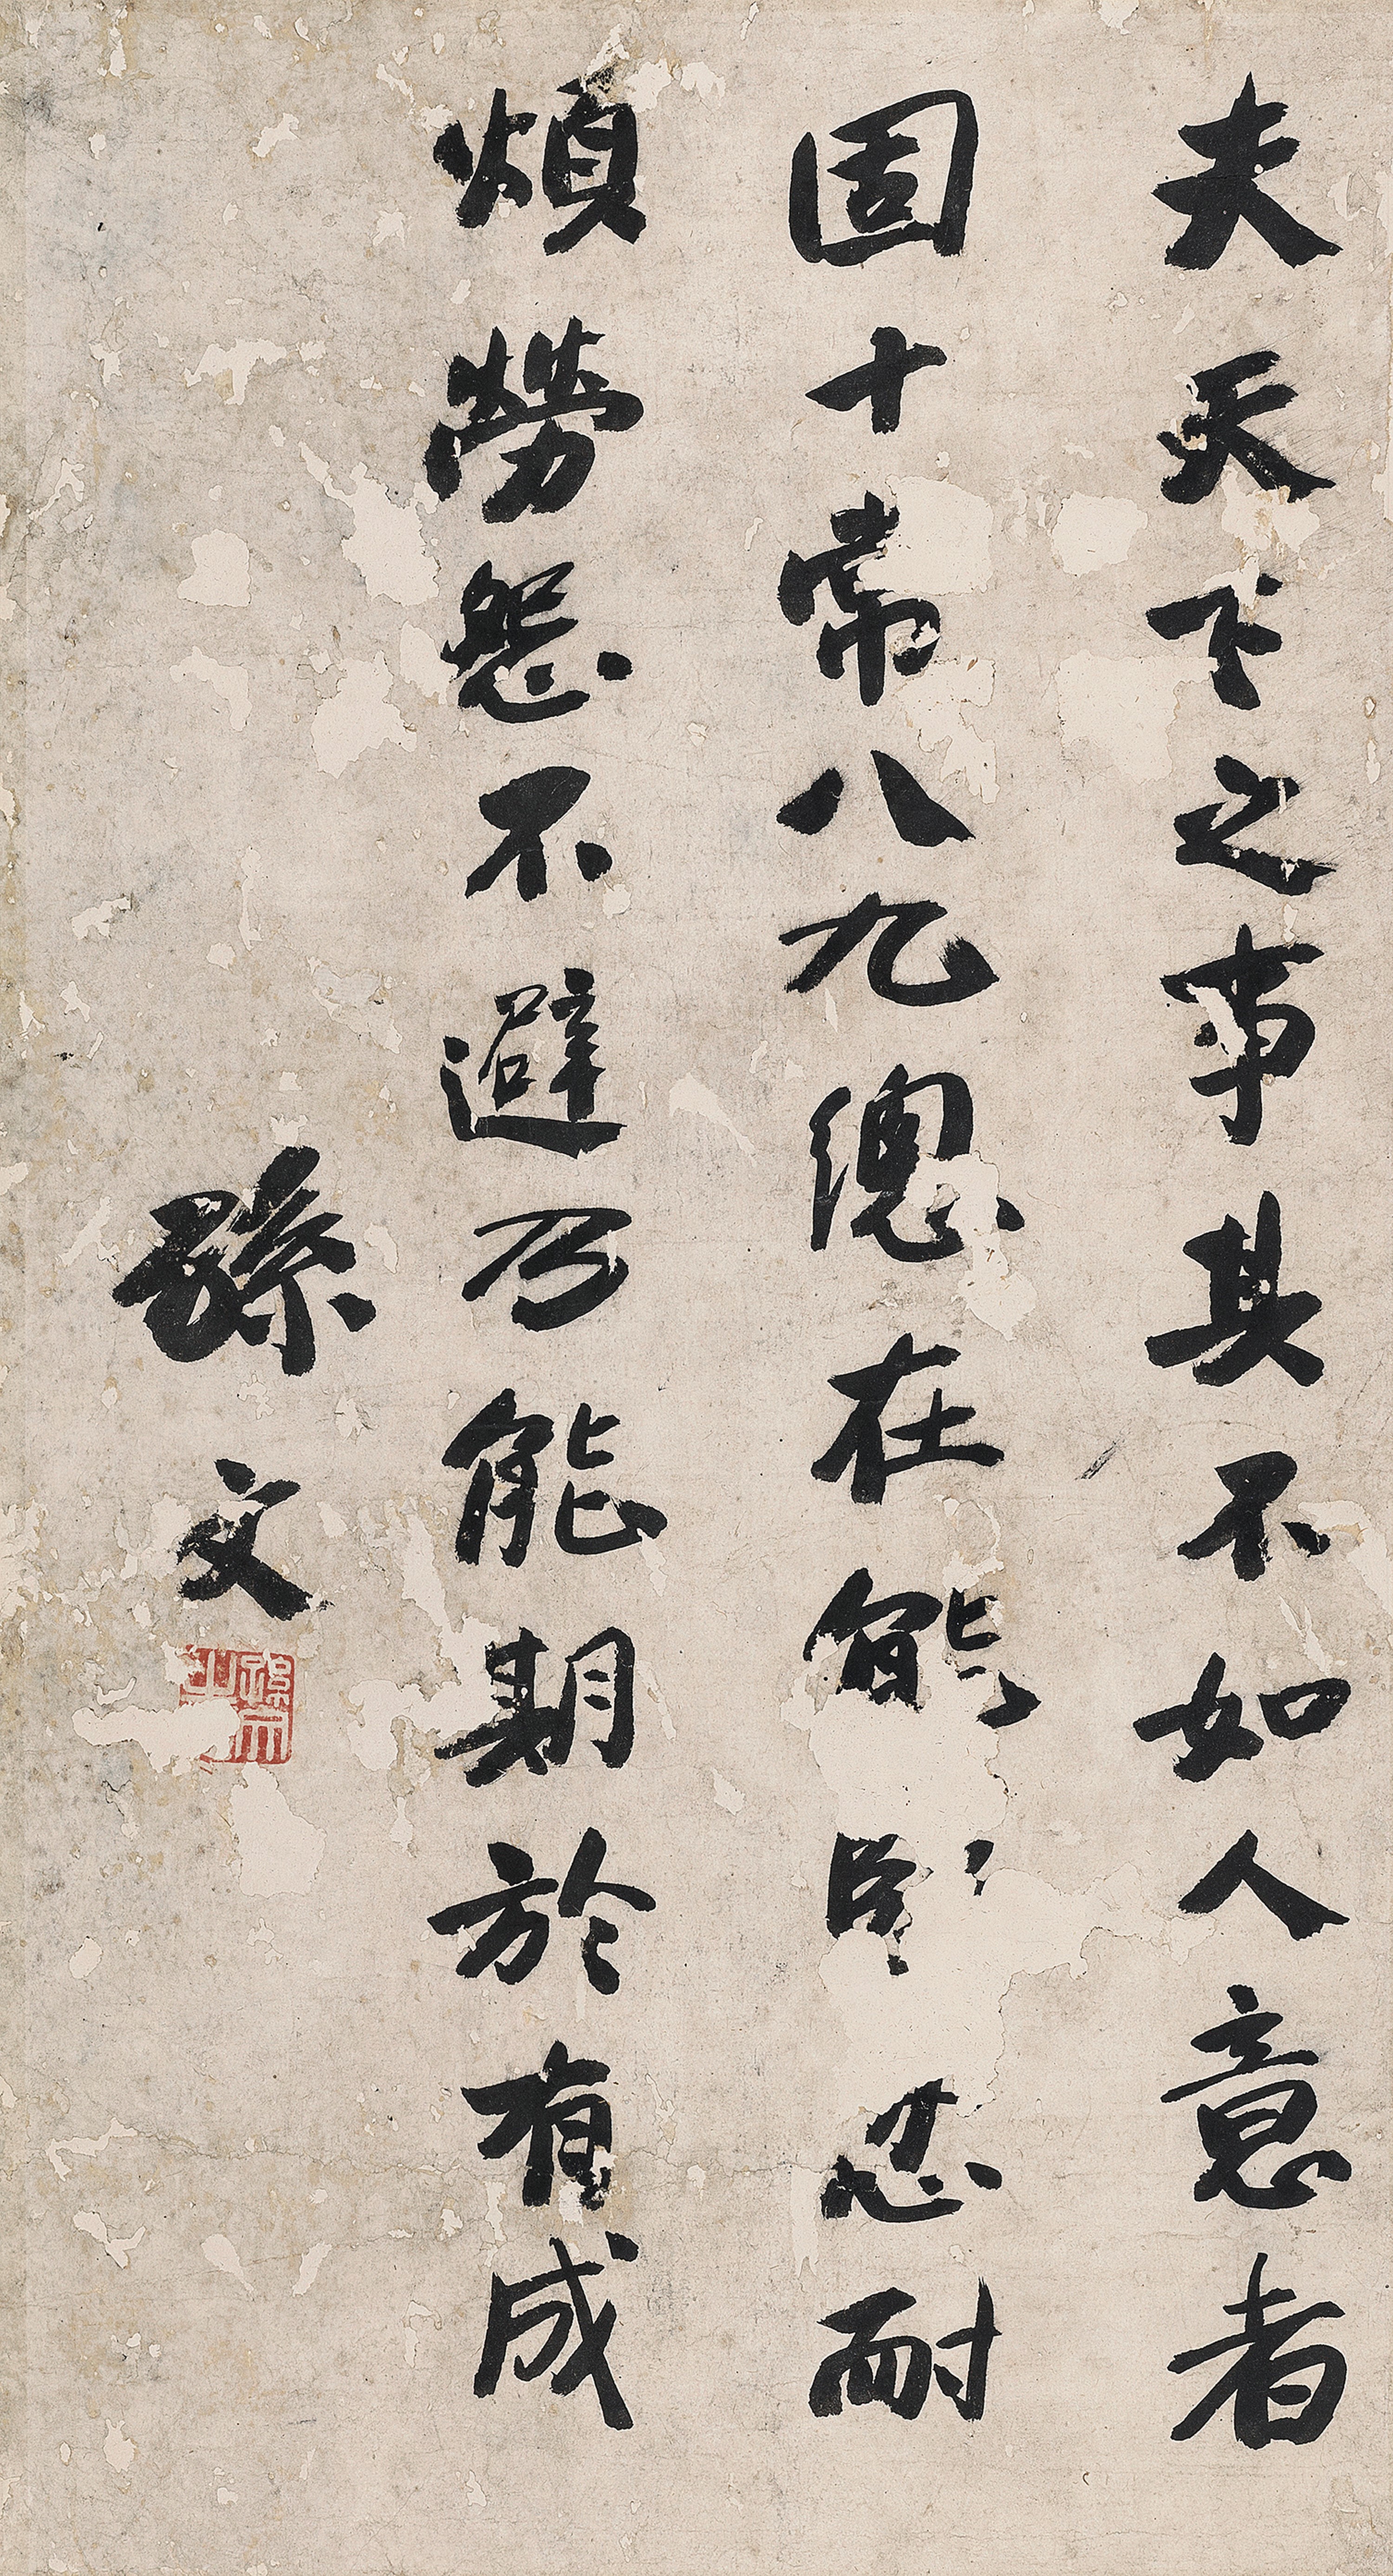 夫天下之事其不如人意者
固十常八九總在能卧忍耐
煩勞怨不避乃能期於有成
孫文
孫文之